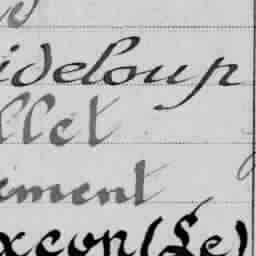 ideloup
llet
ement
xcon (Le)